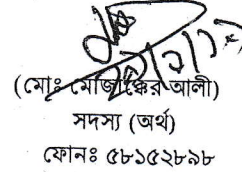 (মোঃ মোজাক্কের আলী)
সদস্য (অর্থ)
ফোনঃ ৫৮১৫২৮৯৮